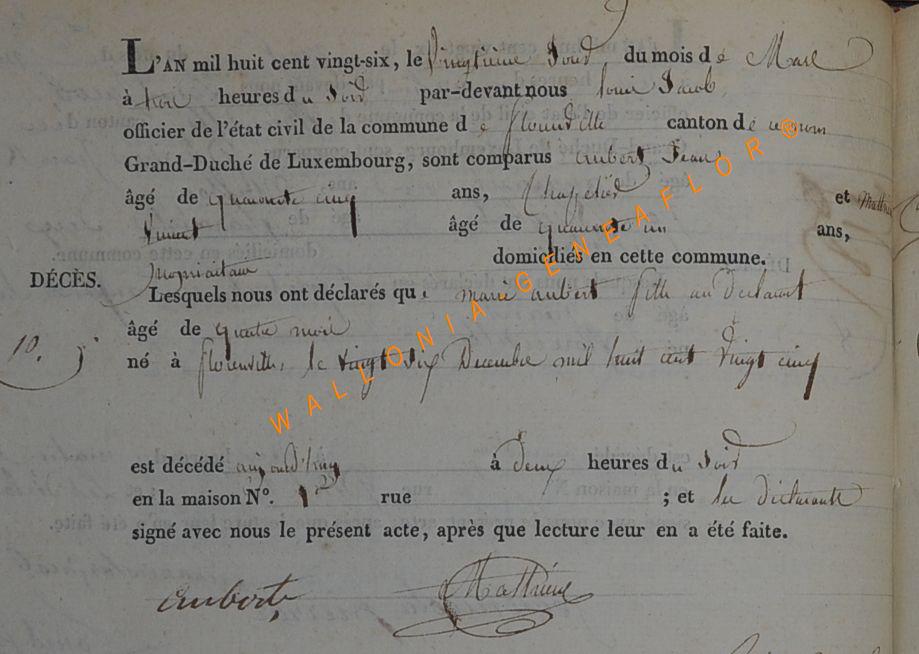 L'AN mil huit cent vingt-six, le vingtième jour du mois de Mars
à trois heures du soir par-devant nous louis Jacob
officier de l'état civil de la commune de florenville canton de
Grand-Duché de Luxembourg, sont comparus aubert Jean
âgé de quarante cinq ans, et Mathieu
âgé de quarante un ans,
domiciliés en cette commune.
DÉCÈS.
Lesquels nous ont déclarés que marie aubert fille au déclarant
âgé de quatre mois
10.
né à florenville, le vingt six Decembre mil huit cent vingt cinq
est décédé aujourd'huy à deux heures du soir
en la maison N°. rue ; et les déclarants
signé avec nous le présent acte, après que lecture leur en a été faite.
aubert Mathieu
WALLONIA GENEAFLOR ®